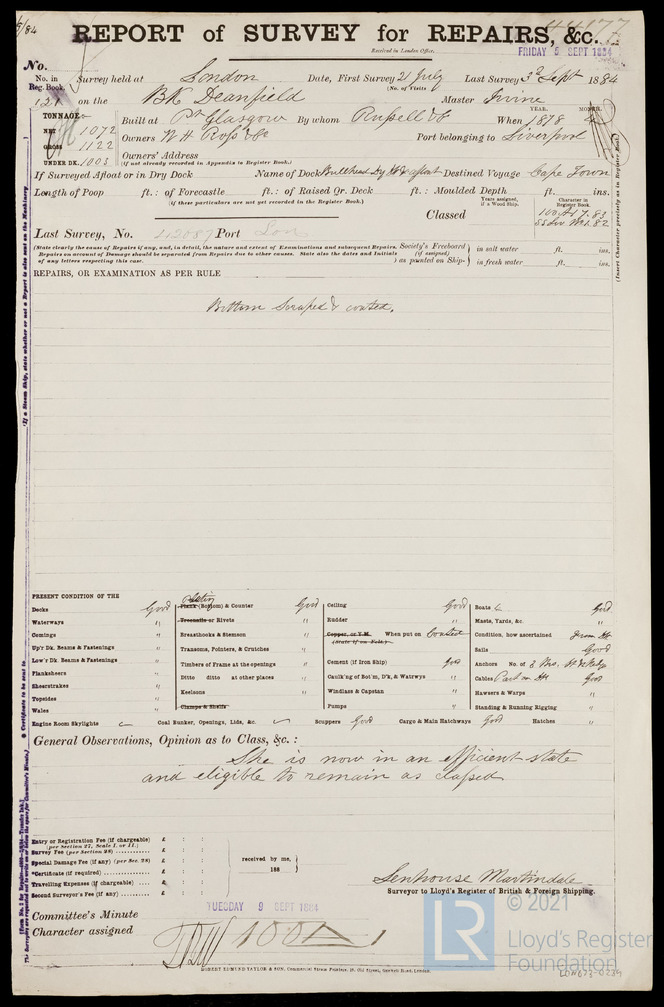 5/84
REPORT of SURVEY for REPAIRS, &c.
Received in London Office,
FRIDAY 5 SEPT 1884
No.
No. in Reg. Book. Survey held at London Date, First Survey 2 July Last Survey 3rd Sept 1884
(No. of Visits
121 on the BK Deanfield Master Irvine
TONNAGE
NET 1072
GROSS 1122
UNDER DK. 1003
Built at Pt Glasgow By whom Russell & Co When 1878
YEAR. MONTH.
Owners W H Ross & Co Port belonging to Liverpool
Owners' Address
(if not already recorded in Appendix to Register Book.)
If Surveyed Afloat or in Dry Dock Name of Dock & afloat Destined Voyage Cape Town
Length of Poop ft. : of Forecastle ft. : of Raised Qr. Deck ft. : Moulded Depth ft. ins.
(if these particulars are not yet recorded in the Register Book.)
Classed
Years assigned, if a Wood Ship.
Character in Register Book.
100 A1 7.83
Last Survey, No. 112087 Port Lon
(State clearly the cause of Repairs if any, and, in detail, the nature and extent of Examinations and subsequent Repairs. Repairs on account of Damage should be separated from Repairs due to other causes. State also the dates and Initials of any letters respecting this case.
Society's Freeboard (if assigned) as painted on Ship- in salt water ft. ins.
in fresh water ft. ins.
REPAIRS, OR EXAMINATION AS PER RULE
Bottom Scraped & coated.
(If a Steam Ship, state whether or not a Report is also sent on the Machinery.
(Insert Character precisely as in Register Book.)
PRESENT CONDITION OF THE
Decks Good
Waterways "
Comings "
Up'r Dk. Beams & Fastenings "
Low'r Dk. Beams & Fastenings "
Planksheers "
Sheerstrakes "
Topsides "
Wales "
Plating
Plank (Bottom) & Counter Good
Treenails or Rivets "
Breasthooks & Stemson "
Transoms, Pointers, & Crutches "
Timbers of Frame at the openings "
Ditto ditto at other places "
Keelsons "
Clamps & Shelfs
Ceiling Good
Rudder "
Copper, or Y.M. When put on Coated
(State if on Felt.)
Cement (if Iron Ship) Good
Caulk'ng of Bot'm, D'k, & Watrwys "
Windlass & Capstan "
Pumps "
Boats 4 Good
Masts, Yards, &c. "
Condition, how ascertained From Dk
Sails Good
Anchors No. of
Cables Part on Dk Good
Hawsers & Warps "
Standing & Running Rigging "
Engine Room Skylights Coal Bunker, Openings, Lids, &c. Scuppers Good Cargo & Main Hatchways Good Hatches "
General Observations, Opinion as to Class, &c. :
She is now in an efficient state
and eligible to remain as classed
Entry or Registration Fee (if chargeable) £ : :
(per Section 27, Scale I. or II.)
Survey Fee (per Section 28) £ : :
Special Damage Fee (if any) (per Sec. 28) £ : :
*Certificate (if required) £ : :
Travelling Expenses (if chargeable) £ : :
Second Surveyor's Fee (if any) £ : :
received by me,
188
Senhouse Martindale
Surveyor to Lloyd's Register of British & Foreign Shipping.
TUESDAY 9 SEPT 1884
Committee's Minute
Character assigned 100A1
ROBERT EDMUND TAYLOR & SON, Commercial Steam Printers, 19, Old Street, Goswell Road, London.
© 2021
LR
Lloyd's Register
Foundation
LON673-0235